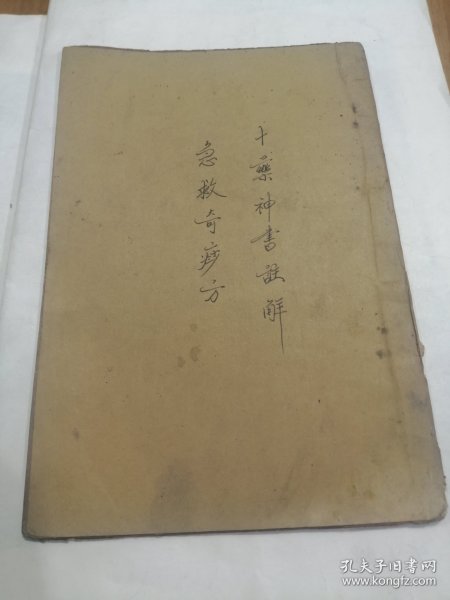 十藥神書註解
急救奇痧方
孔夫子旧书网
www.kongfz.com